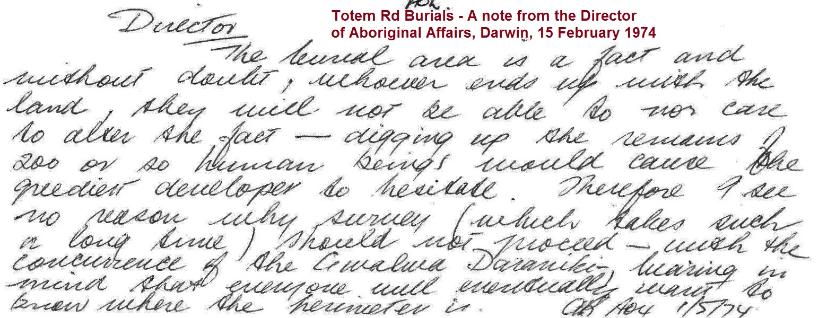 Totem Rd Burials - A note from the Director
of Aboriginal Affairs, Darwin, 15 February 1974
Director
The burial area is a fact and
without doubt, whoever ends up with the
land, they will not be able to nor care
to alter the fact — digging up the remains of
200 or so human beings would cause the
greediest developer to hesitate. Therefore I see
no reason why survey (which takes such
a long time) should not proceed — with the
concurrence of the Gwalwa Daraniki, bearing in
mind that everyone will eventually want to
know where the perimeter is. 1/5/74